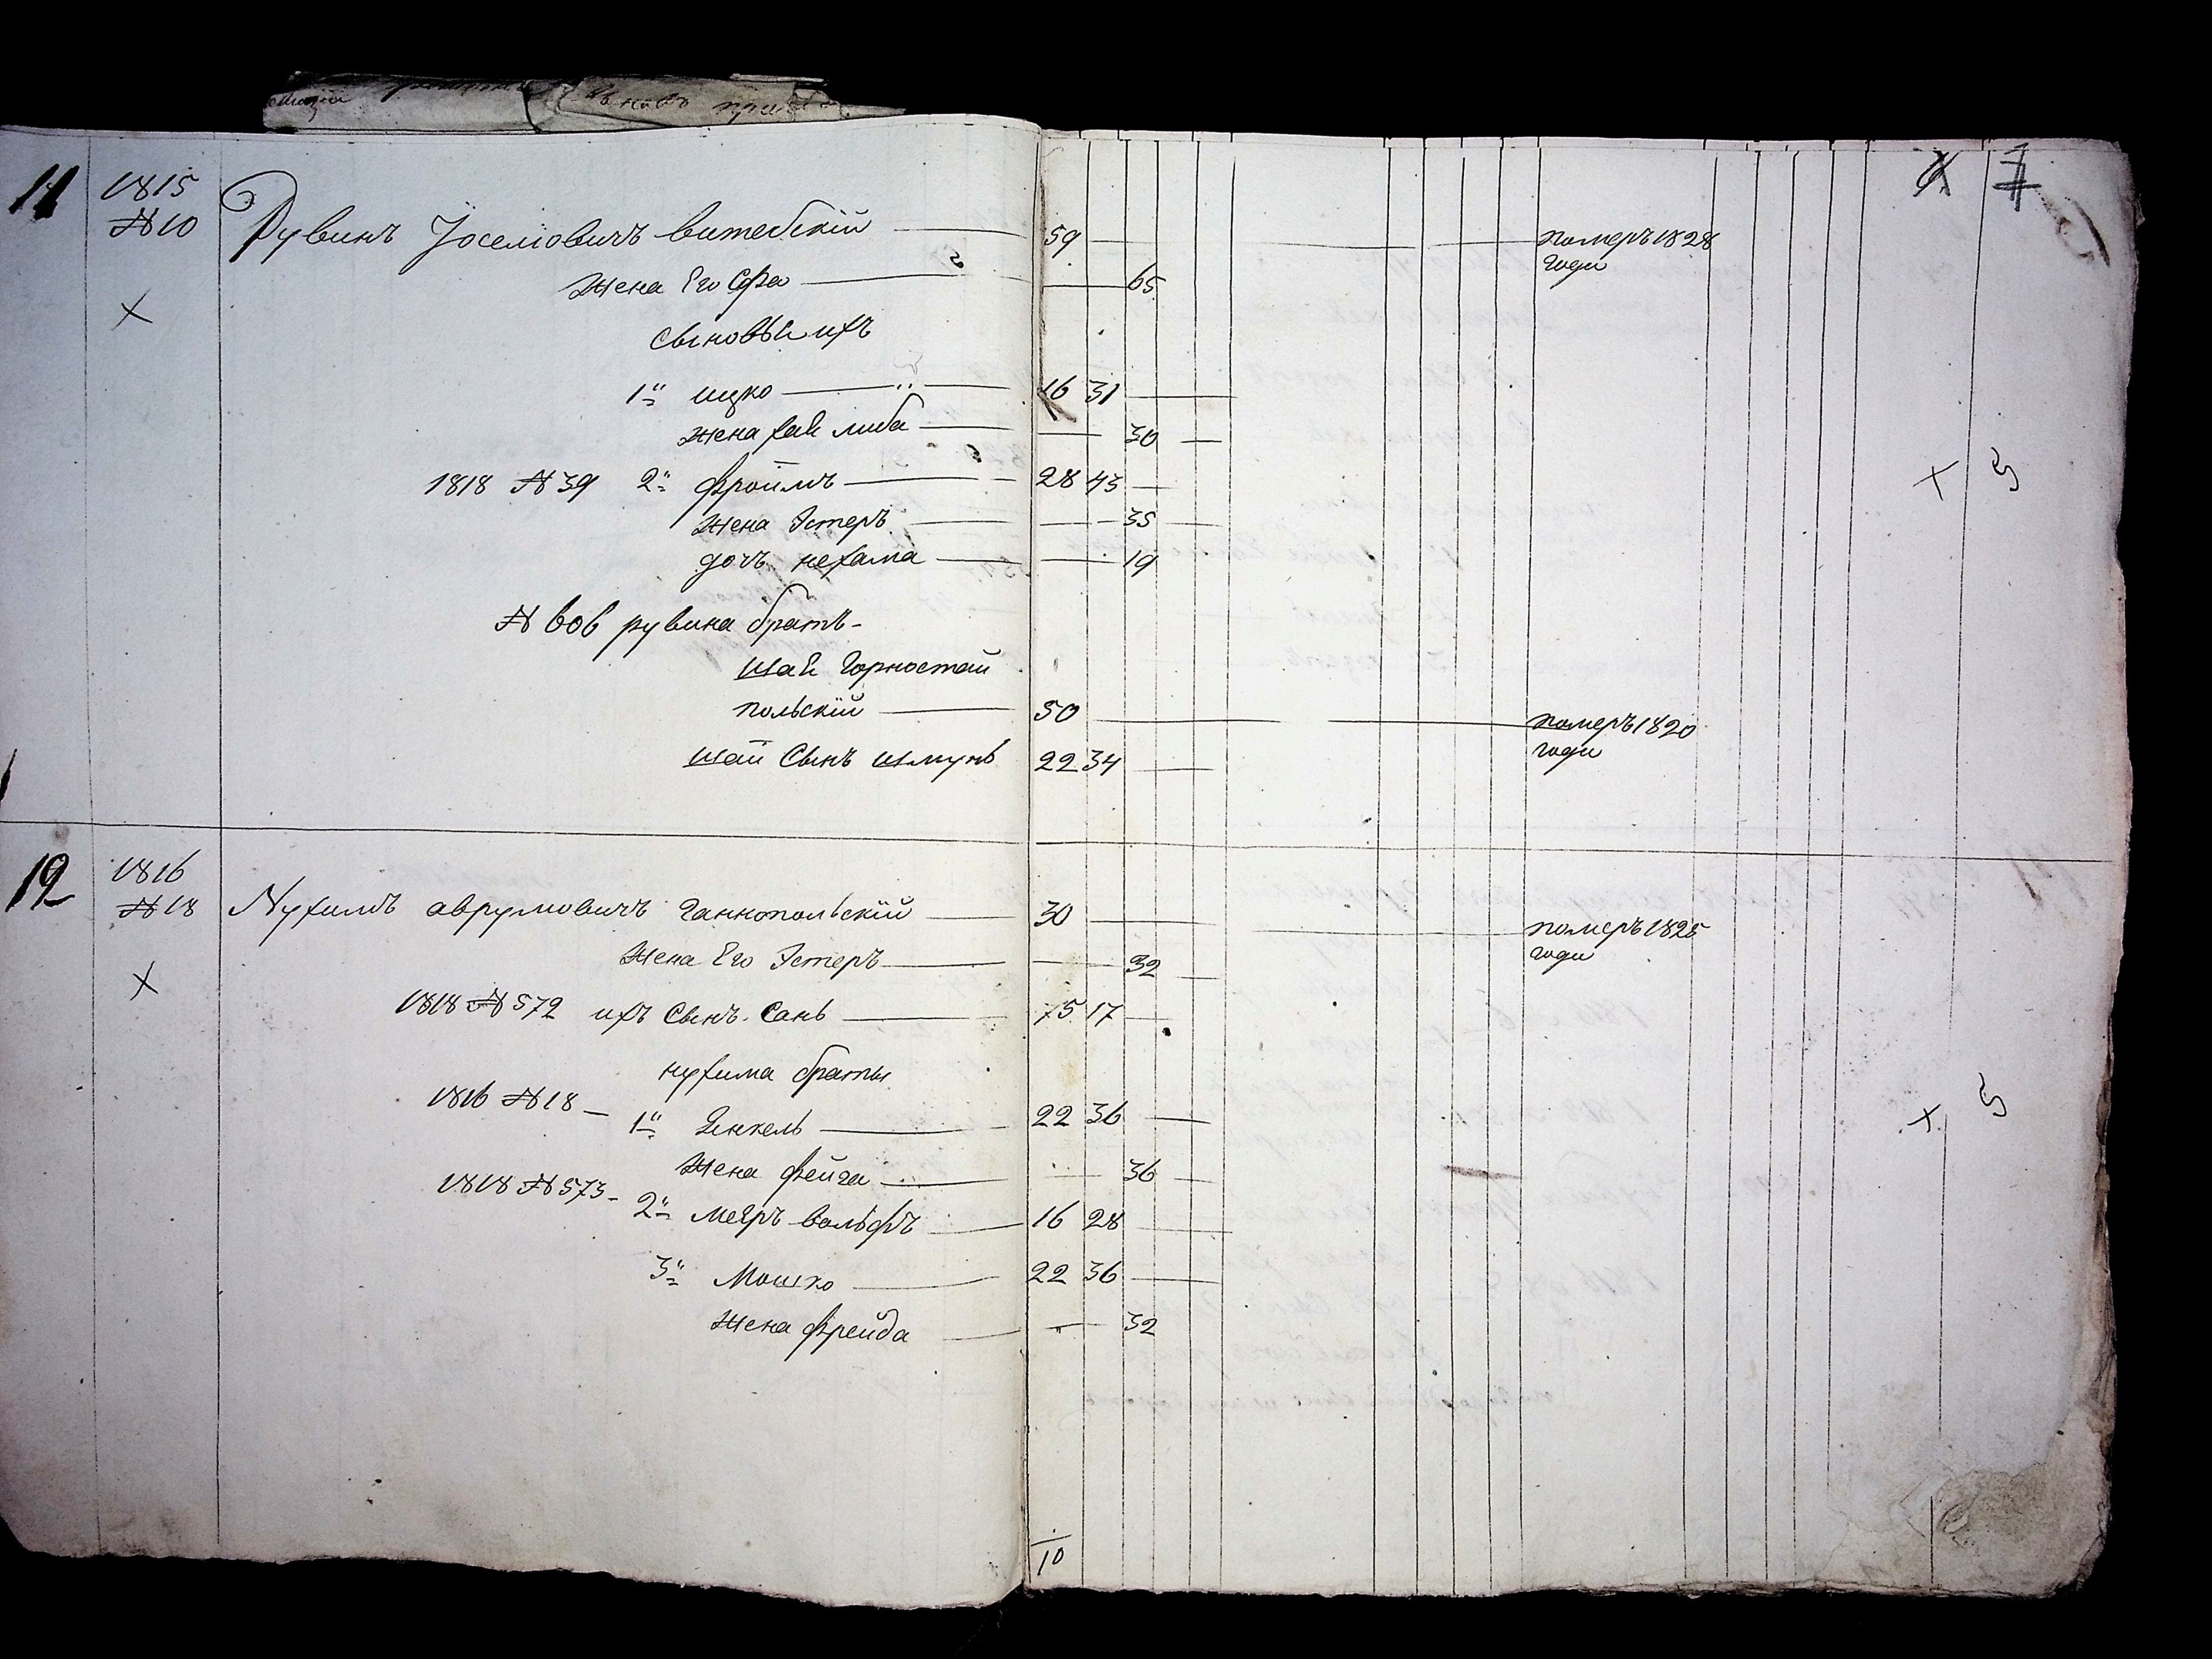 11 1815 6 7
№10 Рувинъ Іоселіовичъ витебскій 59 померъ 1828
годи
Жена Его Сфра 65
сыновье ихъ
1й ицко 16 31
жена хае либа 30
1818 №39 2й фроимъ 28 43
Жена Эстеръ 35
дочъ нехама 19
№ 606 рувина братъ-
шае Горностай
польскій 50 померъ 1820
годи
шаи Сынъ шмунь 22 34
12 1816
№18 Нухимъ аврумовичъ Ганнопольскій 30 померъ 1825
годи
Жена Его Эстеръ 32
1818 №572 ихъ Сынъ. Сань 75 17
нухима браты
1816 №18 – 1й Енкель 22 36
Жена фейга 36
1818 №573- 2й мееръ вольфъ 16 28
3й Мошко 22 36
Жена фрейда 32
10